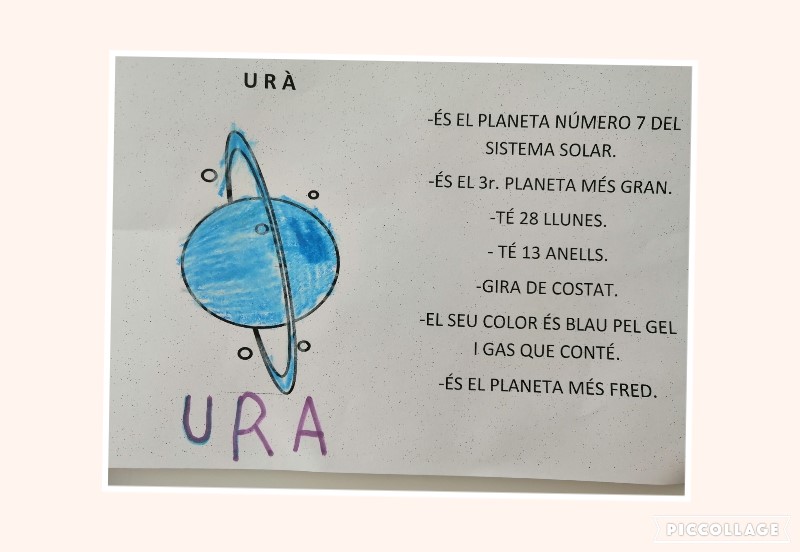 URÀ
-ÉS EL PLANETA NÚMERO 7 DEL
SISTEMA SOLAR.
-ÉS EL 3r. PLANETA MÉS GRAN.
-TÉ 28 LLUNES.
- TÉ 13 ANELLS.
-GIRA DE COSTAT.
-EL SEU COLOR ÉS BLAU PEL GEL
I GAS QUE CONTÉ.
-ÉS EL PLANETA MÉS FRED.
URA
PICCOLLAGE